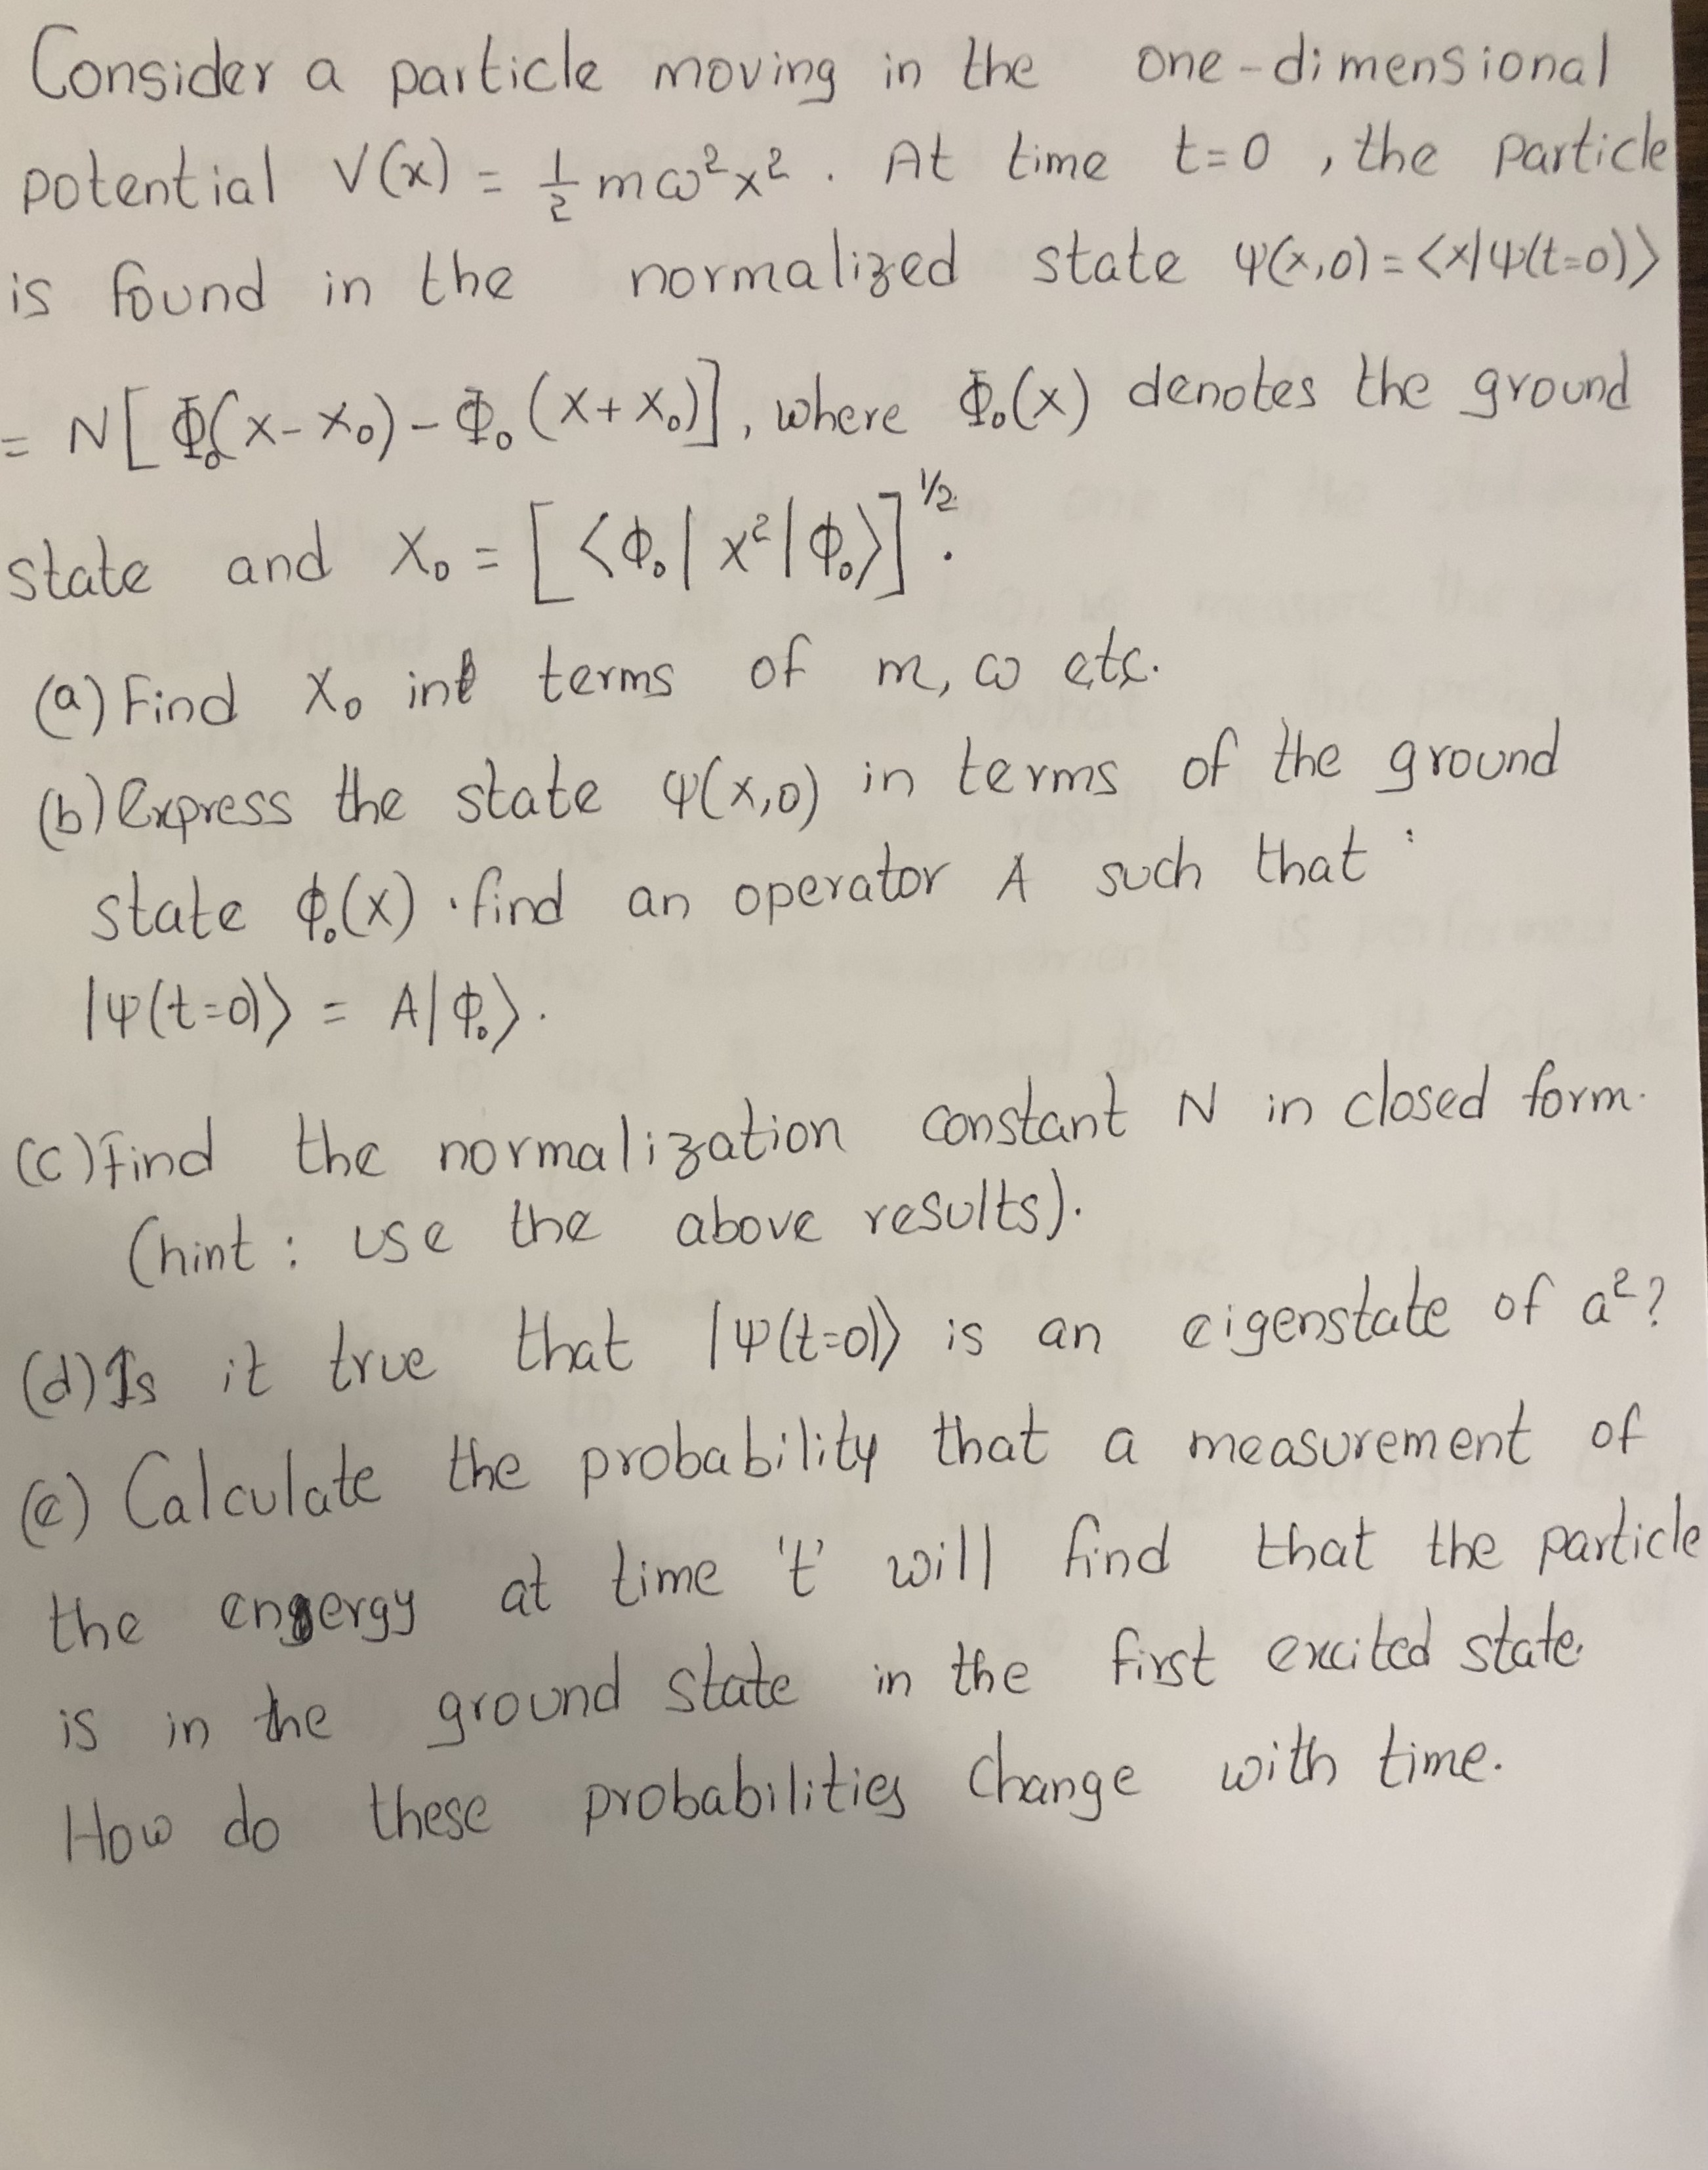 Consider a particle moving in the one-dimensional
potential V(x) = 1/2 mω²x². At time t=0, the particle
is found in the normalized state ψ(x,0) = <x|ψ(t=0)>
= N[Φ₀(x-x₀) - Φ₀(x+x₀)], where Φ₀(x) denotes the ground
state and X₀ = [<Φ₀|x²|Φ₀>]^1/2.
(a) Find X₀ in terms of m, ω etc.
(b) Express the state ψ(x,0) in terms of the ground
state Φ₀(x). find an operator A such that :
|ψ(t=0)> = A|Φ₀>.
(c) Find the normalization constant N in closed form.
(hint : use the above results).
(d) Is it true that |ψ(t=0)> is an eigenstate of a²?
(e) Calculate the probability that a measurement of
the energy at time 't' will find that the particle
is in the ground state in the first excited state.
How do these probabilities change with time.